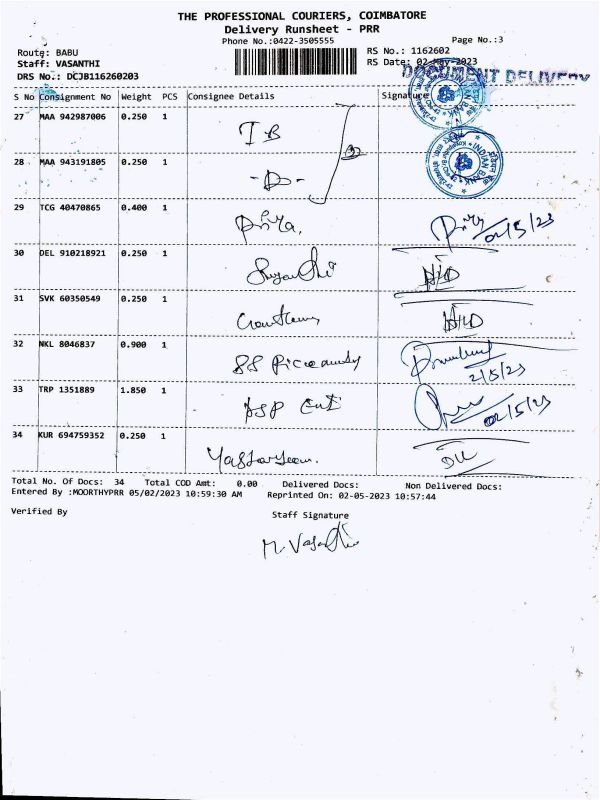 THE PROFESSIONAL COURIERS, COIMBATORE
Delivery Runsheet - PRR
Phone No.:0422-3505555 Page No.:3
Route: BABU RS No.: 1162602
Staff: VASANTHI RS Date: 02-May-2023
DRS No.: DCJB116260203 DOCUMENT DELIVERY
S No Consignment No Weight PCS Consignee Details Signature
27 MAA 942987006 0.250 1 I B
28 MAA 943191805 0.250 1 -D-
INDIAN BANK
29 TCG 40470865 0.400 1 Priya. 02/5/23
30 DEL 910218921 0.250 1
31 SVK 60350549 0.250 1
32 NKL 8046837 0.900 1 2/5/23
33 TRP 1351889 1.850 1 02/5/23
34 KUR 694759352 0.250 1
Total No. Of Docs: 34 Total COD Amt: 0.00 Delivered Docs: Non Delivered Docs:
Entered By :MOORTHYPRR 05/02/2023 10:59:30 AM Reprinted On: 02-05-2023 10:57:44
Verified By Staff Signature
M. Vasanthi